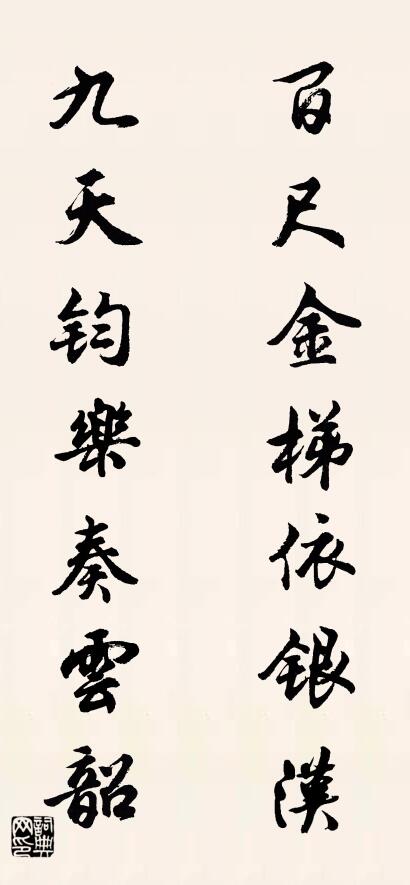 百尺金梯依銀漢
九天鈞樂奏雲韶
詞典網印